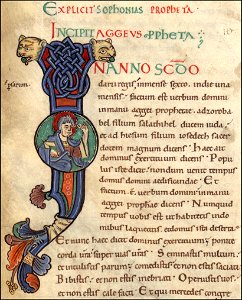 EXPLICIT SOPHONIAS PROPHETA
INCIPIT AGGEUS PPHETA
IN ANNO SCDO
darii regis
mense sexto indie una
mensis factum est verbum domini
in manu aggei prophetae adzoroba
bel filium salathihel ducem iuda
et ad hiesum filium iosedech sacer
dotem magnum dicens Haec ait
dominus exercituum dicens Popu
lus iste dicit nondum venit tempus
domus domini aedificandae Et
factum est verbum domini in manu
aggei prophae dicens Numquid
tempus vobis est ut habitetis indo
mibus laqueatis &domus ista deserta
Et nunc haec dicit dominus exercituum ponite
corda vra super vias vras Seminastis multum
et intulistis parum comedistis et non estis saciati
Bibistis et non estis inebriati Operuistis vos
et non estis cale facti Et qui mercedes congre